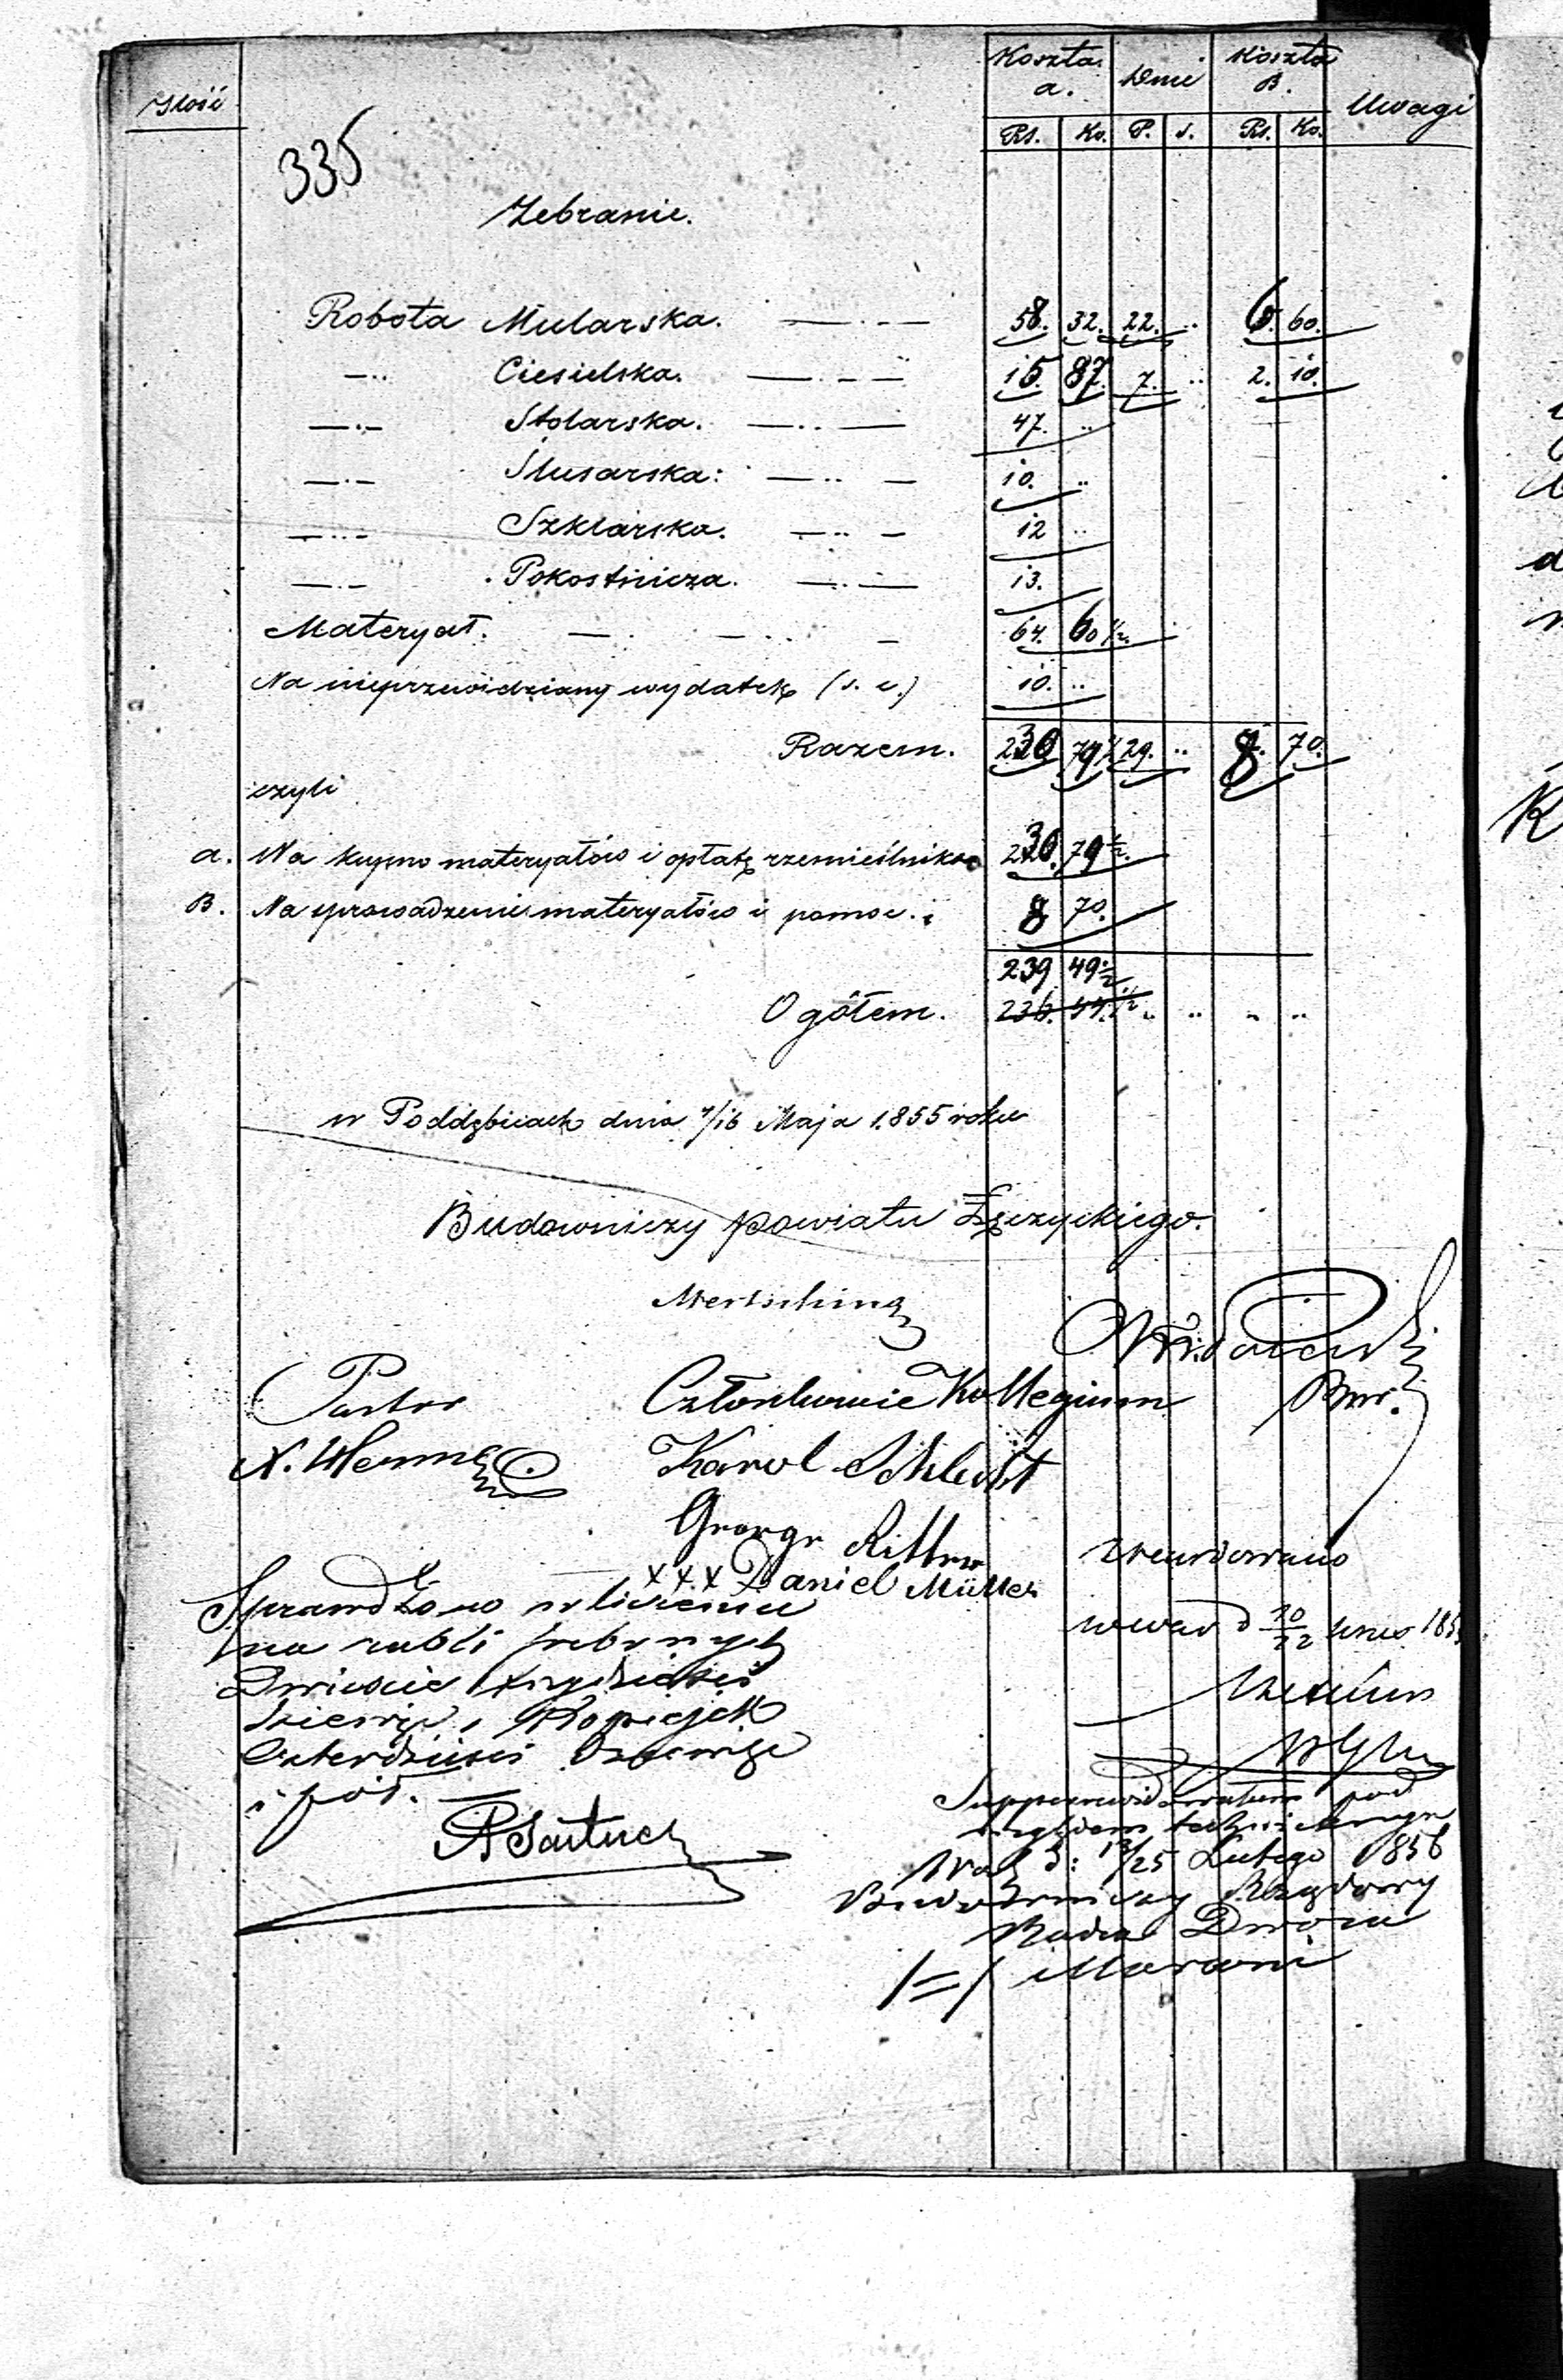 Ilość
Koszta a. Dnie Koszta B. Uwagi
Rs. Ko. P. s. Rs. Ko.
335
Zebranie.
Robota Mularska. 58. 32. 22. .. 6. 60.
—..— Ciesielska. 15. 87. 7. .. 2. 10.
—..— Stolarska. 47. ..
—..— Ślusarska: 10. ..
—..— Szklarska. 12 ..
—..— Pokostnicza. 13.
Materyał. 64. 60 1/2.
Na nieprzewidziany wydatek (s. c.) 10. ..
Razem. 230 79 1/2 29. .. 8. 70.
czyli
a. Na kupno materyałów i opłatę rzemieślników 230. 79 1/2.
B. Na sprowadzenie materyałów i pomoc. 8 70.
239 49 1/2
Ogółem. 236. 1/2 .. .. .. ..
w Poddębicach dnia 4/16 Maja 1855 roku
Budowniczy Powiatu Łęczyckiego.
Mertsching
Pastor Członkowie Kollegium Bmr.
Karol Schlecht
George Rittner
xxx Daniel Müller
Sprawdzono w liczeniu
na rubli srebrnych
Dwieście trzydzieści
dziewięć, Kopiejek
Czterdzieści dziewięć
i pół.
Zrewidowano
10/22 1855
Superrewidowałem pod
względem technicznym
Wa d: 13/25 Lutego 1856
Budowniczy Rządowy
Radca Dworu
/=/ Marconi